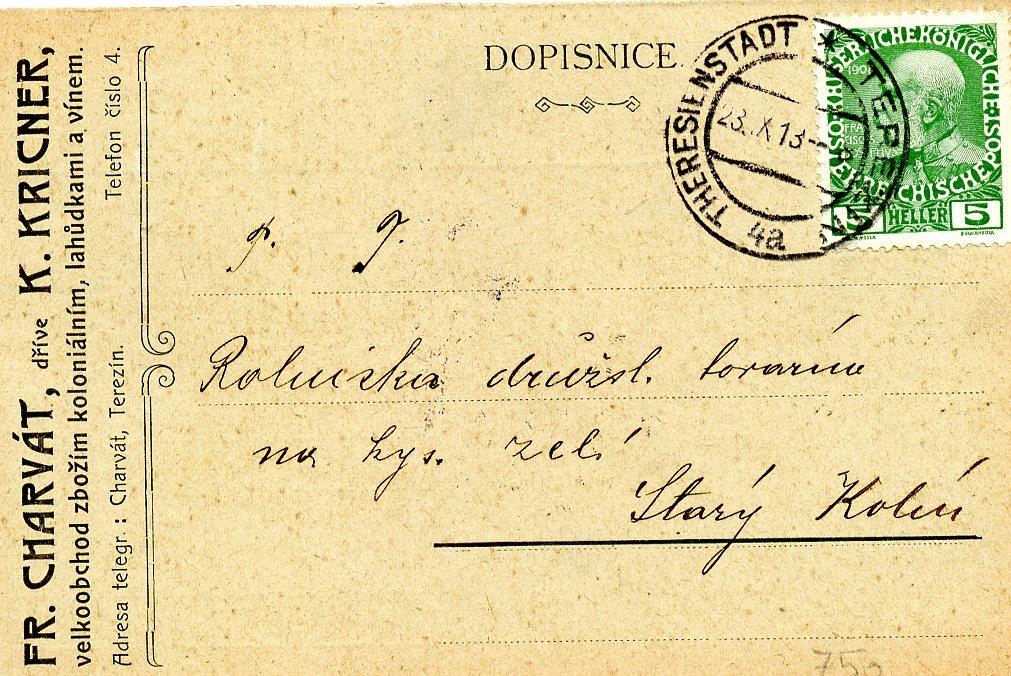 FR. CHARVÁT, dříve K. KRICNER,
velkoobchod zbožím koloniálním, lahůdkami a vínem.
Adresa telegr.: Charvát, Terezín. Telefon číslo 4.
DOPISNICE.
THERESIENSTADT * TERE
23.X.13
4a
KAISERLICHE KÖNIGLICHE
5 HELLER 5
P. T.
Rolnická družst. továrna
na kys. zelí
Starý Kolín